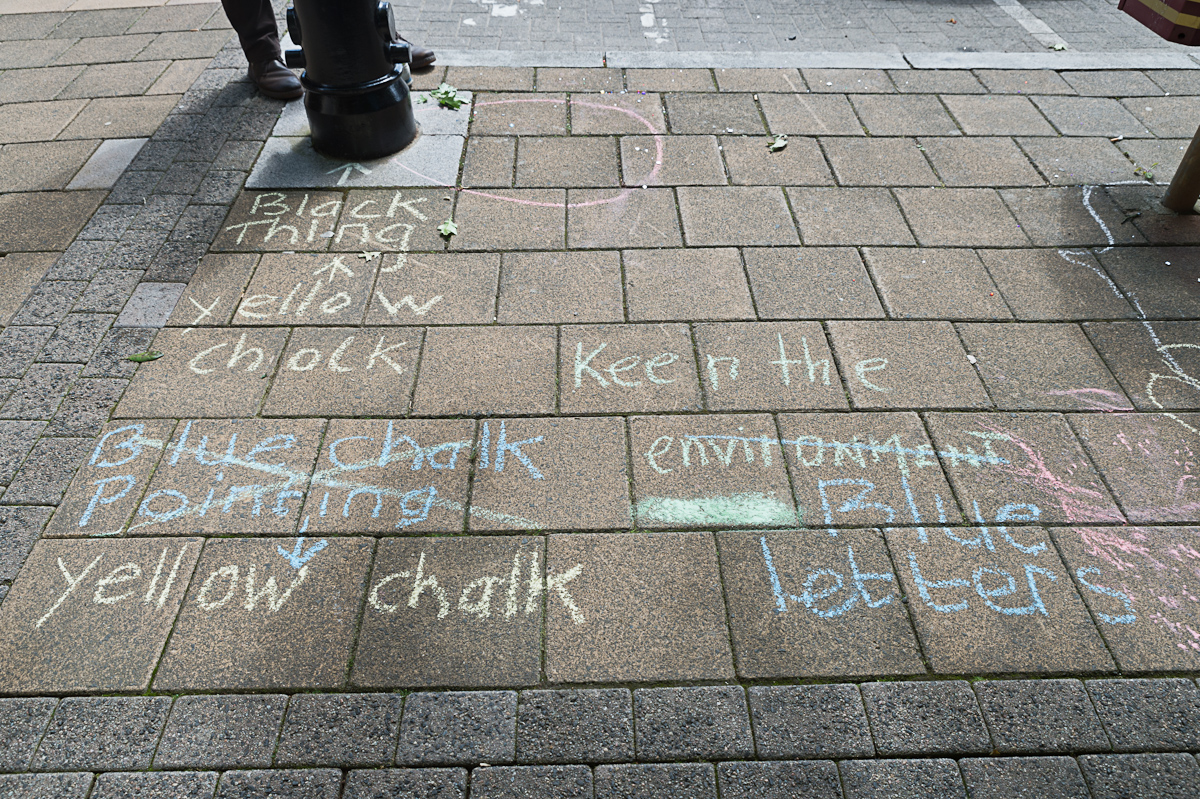 Black
Thing
yellow
chalk
Keen the
environment
Blue chalk
Pointing
yellow chalk
Blue
letters